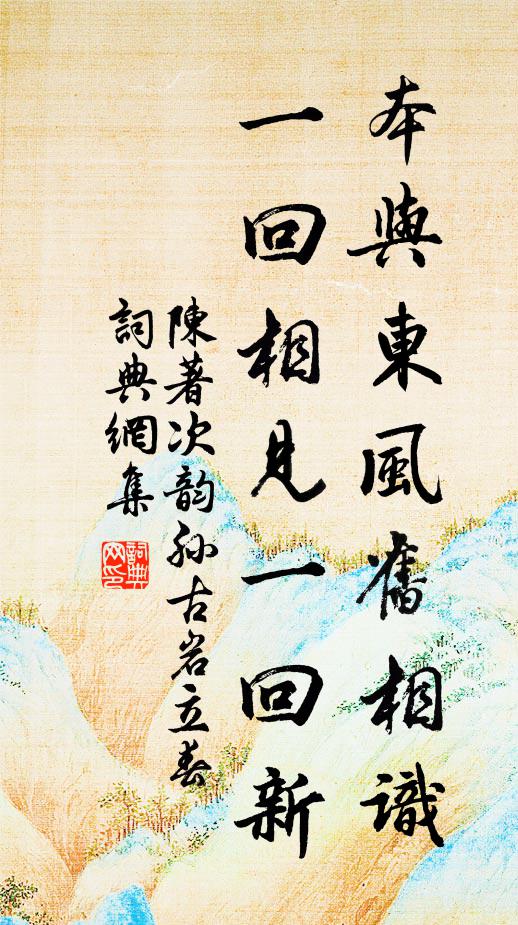 本與東風舊相識
一回相見一回新
陳著次韵孫古岩立春
詞典網集
詞典網印